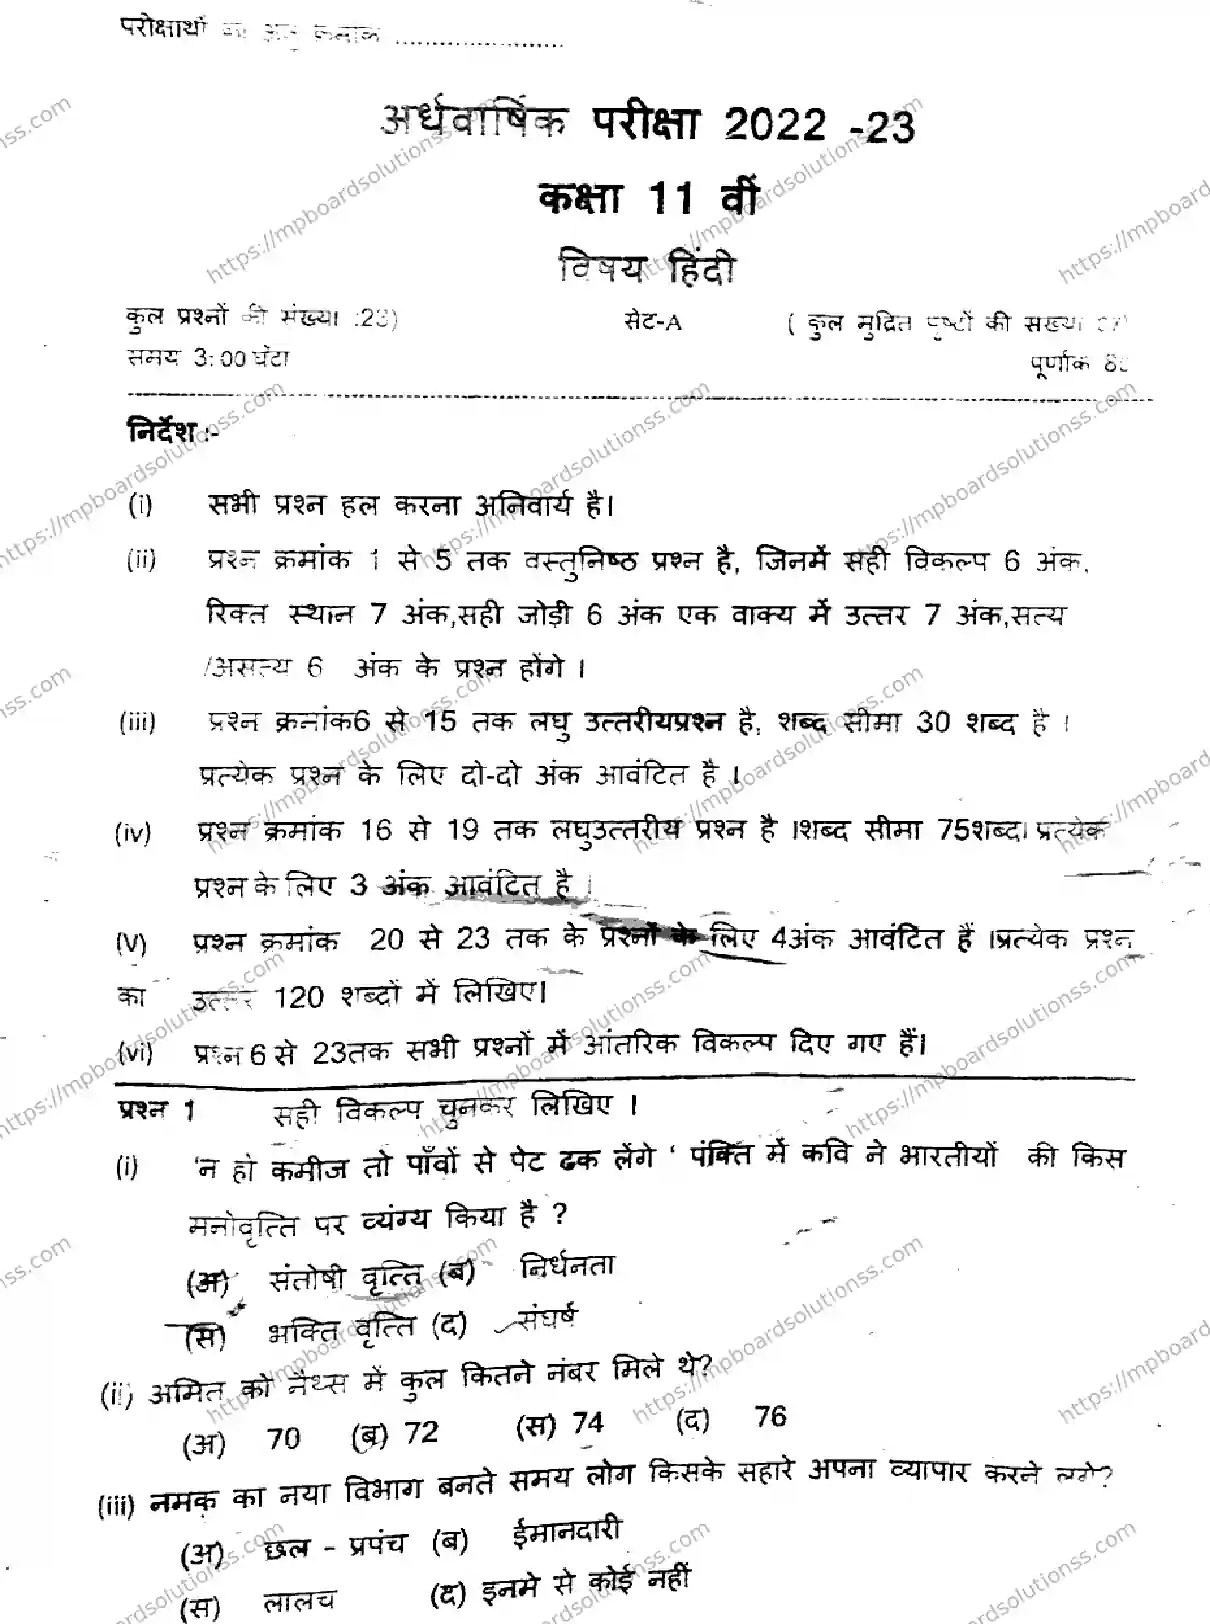 परीक्षार्थी का अनु क्रमांक ..............................
अर्धवार्षिक परीक्षा 2022 -23
कक्षा 11 वीं
विषय हिंदी
कुल प्रश्नों की संख्या :23)
सेट-A
( कुल मुद्रित पृष्टों की सख्या 07)
समय 3:00 घंटा
पूर्णांक
निर्देश :-
(i) सभी प्रश्न हल करना अनिवार्य है।
(ii) प्रश्न क्रमांक 1 से 5 तक वस्तुनिष्ठ प्रश्न है, जिनमें सही विकल्प 6 अंक,
रिक्त स्थान 7 अंक,सही जोड़ी 6 अंक एक वाक्य में उत्तर 7 अंक,सत्य
/असत्य 6 अंक के प्रश्न होंगे ।
(iii) प्रश्न क्रमांक6 से 15 तक लघु उत्तरीयप्रश्न है, शब्द सीमा 30 शब्द है ।
प्रत्येक प्रश्न के लिए दो-दो अंक आवंटित है ।
(iv) प्रश्न क्रमांक 16 से 19 तक लघुउत्तरीय प्रश्न है ।शब्द सीमा 75शब्द। प्रत्येक
प्रश्न के लिए 3 अंक आवंटित है ।
(V) प्रश्न क्रमांक 20 से 23 तक के प्रश्नों के लिए 4अंक आवंटित हैं ।प्रत्येक प्रश्न
का उत्तर 120 शब्दों में लिखिए।
(vi) प्रश्न 6 से 23तक सभी प्रश्नों में आंतरिक विकल्प दिए गए हैं।
प्रश्न 1 सही विकल्प चुनकर लिखिए ।
(i) 'न हो कमीज तो पाँवों से पेट ढक लेंगे ' पंक्ति में कवि ने भारतीयों की किस
मनोवृत्ति पर व्यंग्य किया है ?
(अ) संतोषी वृत्ति (ब) निर्धनता
(स) भक्ति वृत्ति (द) संघर्ष
(ii) अमित को मैथ्स में कुल कितने नंबर मिले थे?
(अ) 70 (ब) 72 (स) 74 (द) 76
(iii) नमक का नया विभाग बनते समय लोग किसके सहारे अपना व्यापार करने लगे?
(अ) छल - प्रपंच (ब) ईमानदारी
(स) लालच (द) इनमे से कोई नहीं
https://mpboardsolutionss.com